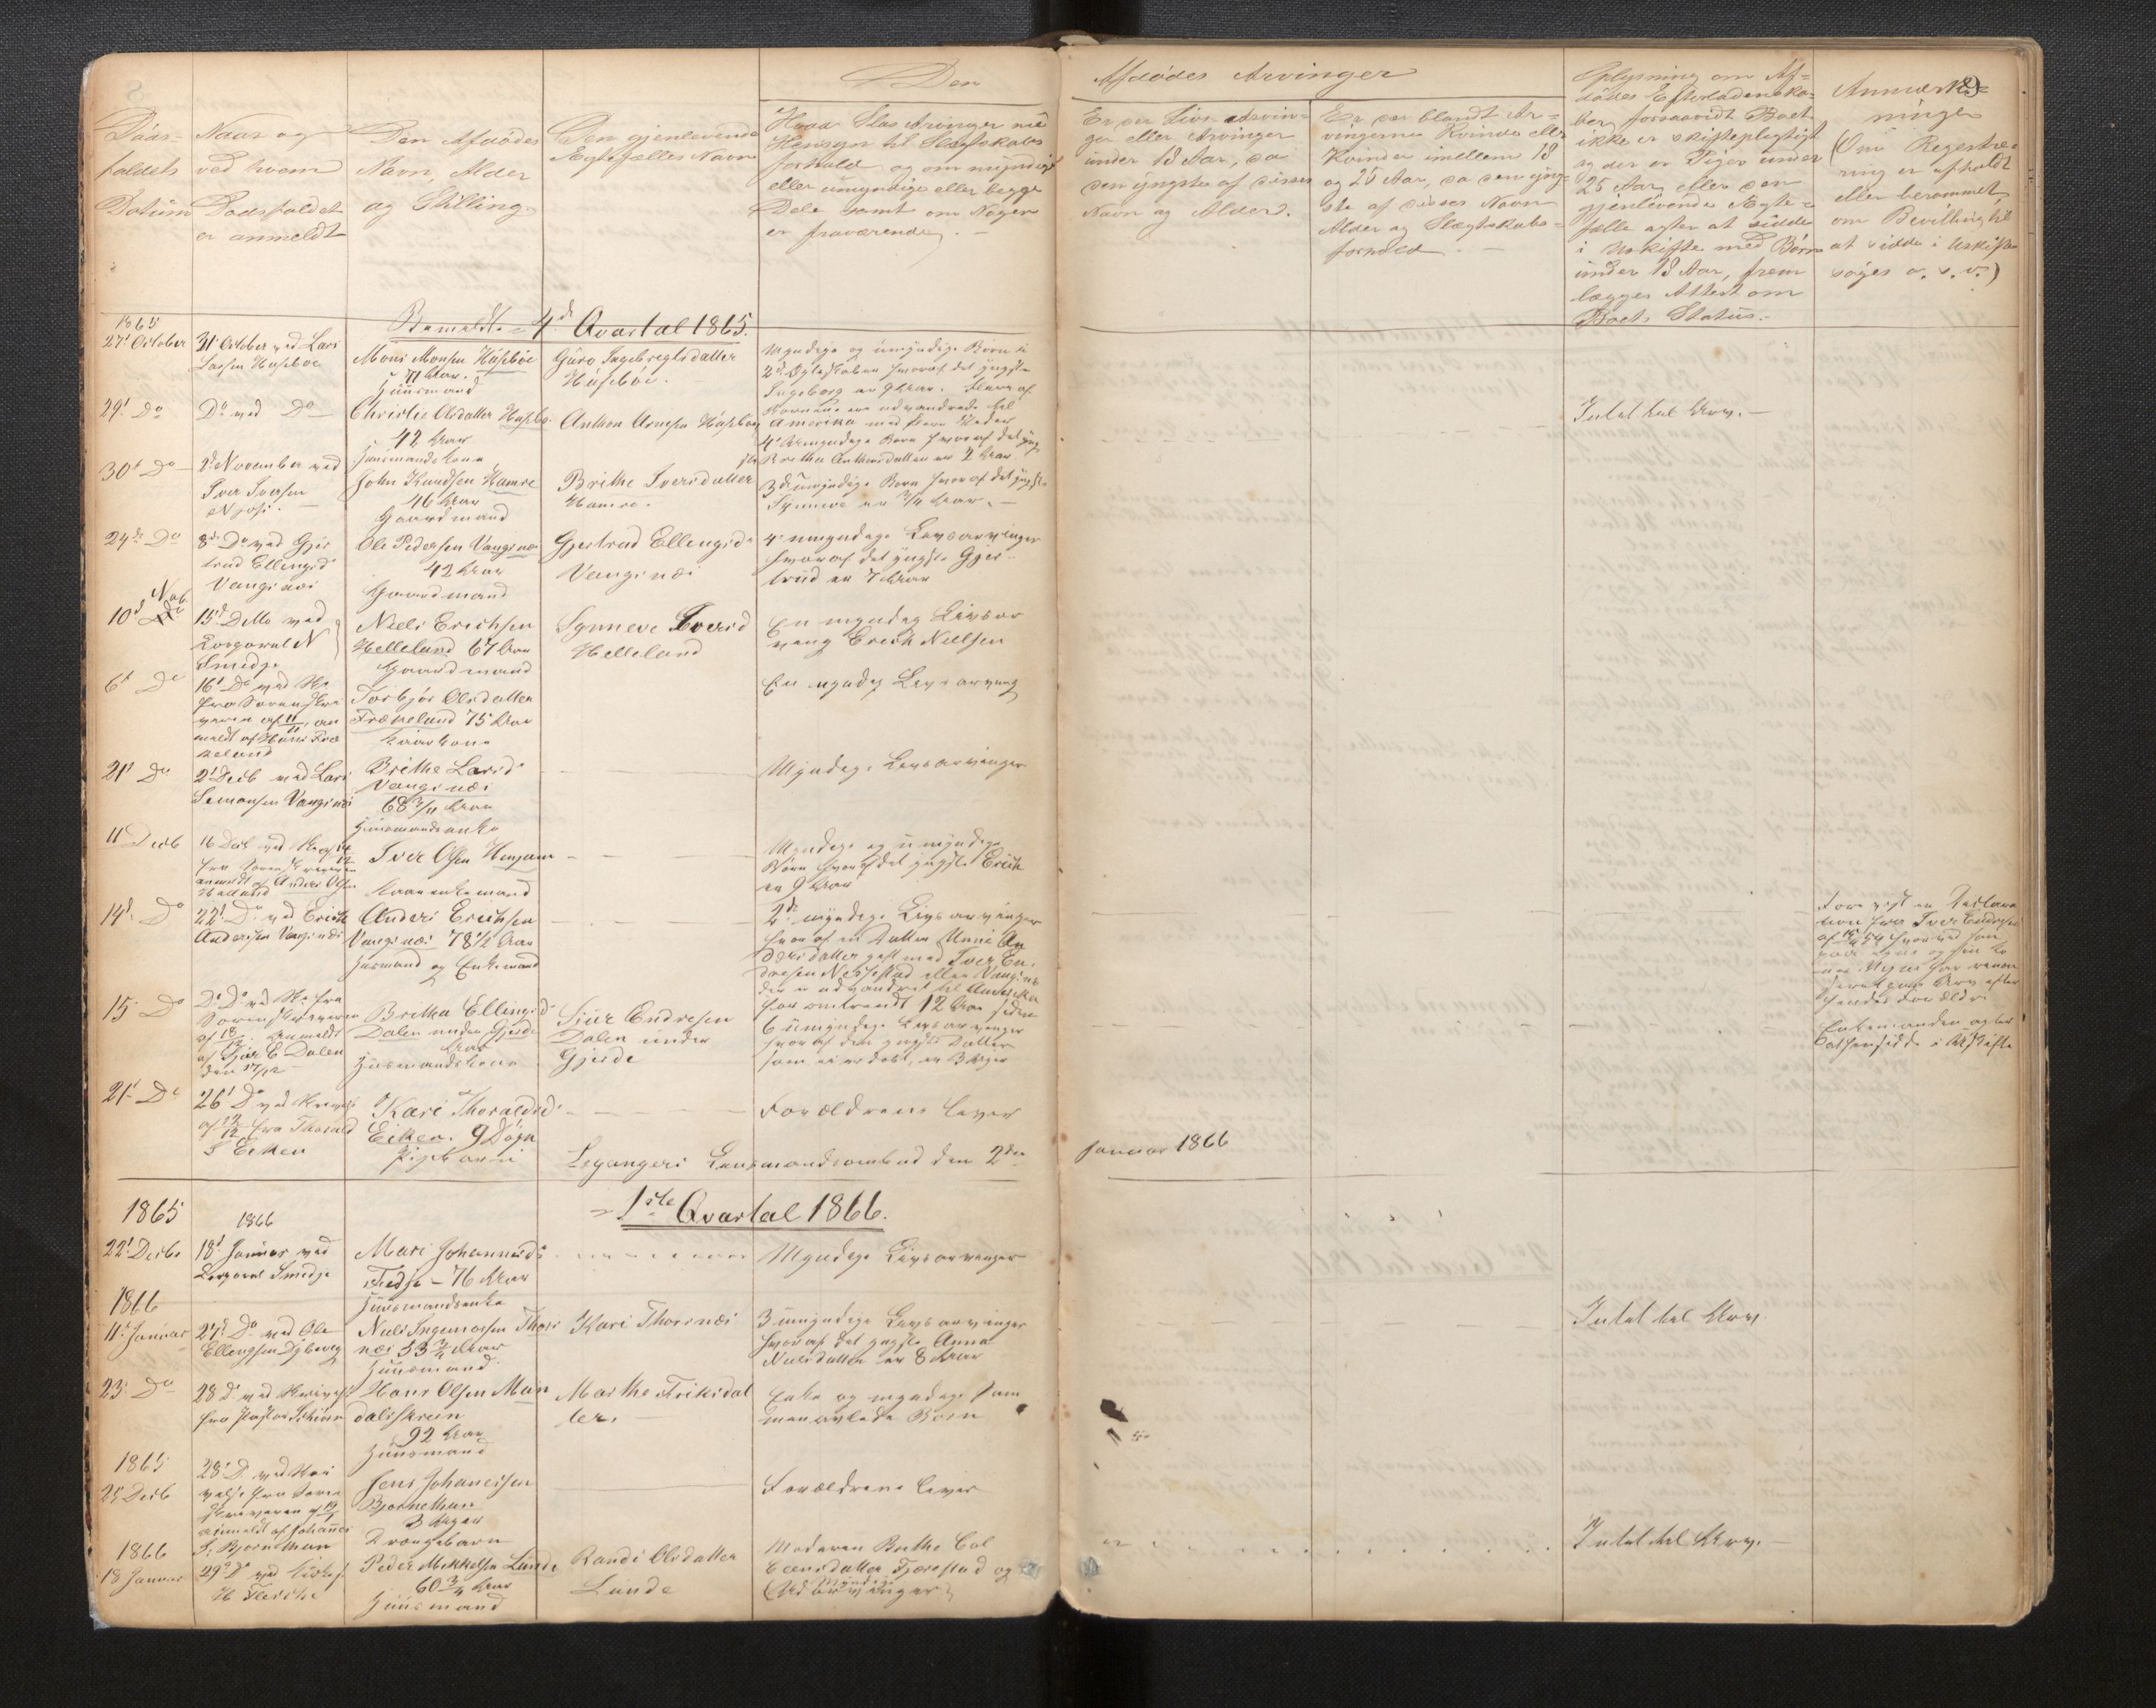 Den
Afdødes Arvinger
8
Døds-
faldets
Datum
Naar og
ved hvem
Dødsfaldet
er anmeldt
Den Afdødes
Navn, Alder
og Stilling
Den gjenlevende
Ægtefælles Navn
Hvad Slags Arvinger med
Hensyn til Slægtskabs
forhold og om myndige
eller umyndige eller begge
Dele samt om Nogen
er fraværende.
Er der Livs Arvin-
ger eller Arvinger
under 18 Aar, da
den yngste af disses
Navn og Alder.
Er der blandt Ar-
vingerne Kvinde eller
Kvinder imellem 18
og 25 Aar, da den yng-
ste af disses Navn
Alder og Slægtskabs-
forhold
Oplysning om Af-
dødes Efterladenska-
ber, forsaavidt Boet
ikke er skiftepligtigt
og der er Piger under
25 Aar, eller den
gjenlevende Ægte-
fælle agter at sidde
i Uskifte med Børn
under 18 Aar, frem
lægges Attest om
Boets Status.
Anmærk-
ninger
(Om Registre-
ring er afholdt
eller berammet,
om Bevilling til
at sidde i Uskifte
søges o. s. v.)
4d Qvartal 1865.
1865
27' October
31' October ved Lars
Larsen Husebøe
Mons Monsen Husebøe
71 Aar.
Huusmand
Guro Ingebregtsdatter
Husebøe.
Myndige og umyndige Børn i
2d Ægteskaber hvoraf det yngste
Ingeborg er 9 Aar. Flere af
Børnene ere udvandrede til
Amerika med
29' Do
Do ved Do
Christie Olsdatter Husebø.
42 Aar
Huusmandskone
Anthon Arnesen Husebøe
4 Umyndige Børn hvoraf det yng
ste Brithe Anthonsdatter er 2 Aar
Intet til Arv.
30' Do
2' November ved
Iver Iversen
Njøs.
John Knudsen Hamre
46 Aar
Gaardmand
Brithe Iversdatter
Hamre.
3de umyndige Børn hvoraf det yngste
Synneve er 3/4 Aar.
24de Do
8de Do ved Gjer
trud Ellingsd
Vangsnæs
Ole Pedersen Vangsnæs
42 Aar
Gaardmand
Gjertrud Ellingsd
Vangsnæs
4 umyndige Livsarvinger
hvoraf det yngste Gjer
trud er 7 Aar
10d Nov
15' Ditto ved
Korporal N
Smedje
Niels Erichsen
Helleland 67 Aar
Gaardmand
Synneve Iversd
Helleland
En myndig Livsar
ving Erich Nielsen
6t Do
16' Do ved
fra Sorenskri
veren af 11/11, an
meldt af Hans Fræ
neland
Torbjør Olsdatter
Fræneland 75 Aar
Kaarkone
En myndig Livsarving
21' Do
2' Decb ved Lars
Simonsen Vangsnæs
Brithe Larsd
Vangsnæs
68 3/4 Aar
Huusmandsenke
Myndige Livsarvinger
11 Decb
16 Decb ved
fra Sorenskriveren
anmeldt af Anders Olsen
Iver Olsen Henjum
Kaarenkemand
Myndige og umyndige
Børn hvoraf det yngste Erich
er 9 Aar
14d Do
22' Do ved Erich
Andersen Vangsnæs
Anders Erichsen
Vangsnæs 78 1/2 Aar
Husmand og Enkemand
2de myndige Livsarvinger
hvoraf en Datter Unni An
dersdatter gift med Iver En
dresen Nessestad eller Vangsnes
der er udvandret til Amerika
for omtrendt 12 Aar siden
Forevist en Declara
tion fra Iver Endresen
15 Do
Do Do ved Sk. fra
Sorenskriveren
af 18/12 Anmeldt
af Sjur E Dalen
den 17/12
Britha Ellingsd
Dalen under Gjerde
Aar
Huusmandskone
Sjur Endresen
Dalen under
Gjerde
6 umyndige Livsarvinger
hvoraf den yngste Datter
som ei er døbt, er 3 Uger
Enkemanden agter
at hensidde i Uskifte
21' Do
26' Do ved Skrivels
af 19/12 fra Thorald
T Eiken
Kari Thoraldsd
Eiken. 9 Døgn
Pigebarn
Forældrene lever
Leganger Lensmandsombud den 2den
Januar 1866
1ste Qvartal 1866.
1865
1866
22' Decbr
18' Januar ved
Korporal Smedje
Mari Johannesd
76 Aar
Huusmandsenke
Myndige Livsarvinger
1866
11' Januar
27' Do ved Ole
Ellingsen
Niels Ingemarsen Thors
næs 53 3/4 Aar
Huusmand
Kari Thorsnæs
3 umyndige Livsarvinger
hvoraf det yngste Anna
Nielsdatter er 8 Aar
Intet til Arv
23' Do
28 Do ved Skrivelse
fra Pastor
Hans Olsen Mun
dalskrein
92 Aar
Huusmand
Marthe Feiksdal
ter.
Enke og myndige sam
menavlede Børn
1865
25 Decb
28' D. ved Skri
velse fra Soren
skriveren af 19/1
anmeldt af Johannes
S. Bjørnethun
Jens Johanesen
Bjørnethun
3 Uger
Drængebarn
Forældrene lever
1866
18 Januar
29' Do ved
Peder Mikkelsen Lunde
60 3/4 Aar
Huusmand
Randi Olsdatter
Lunde
Moderen Brithe Col
beensdatter Fjærestad og
Myndige
Udarvinger
Intet til Arv.